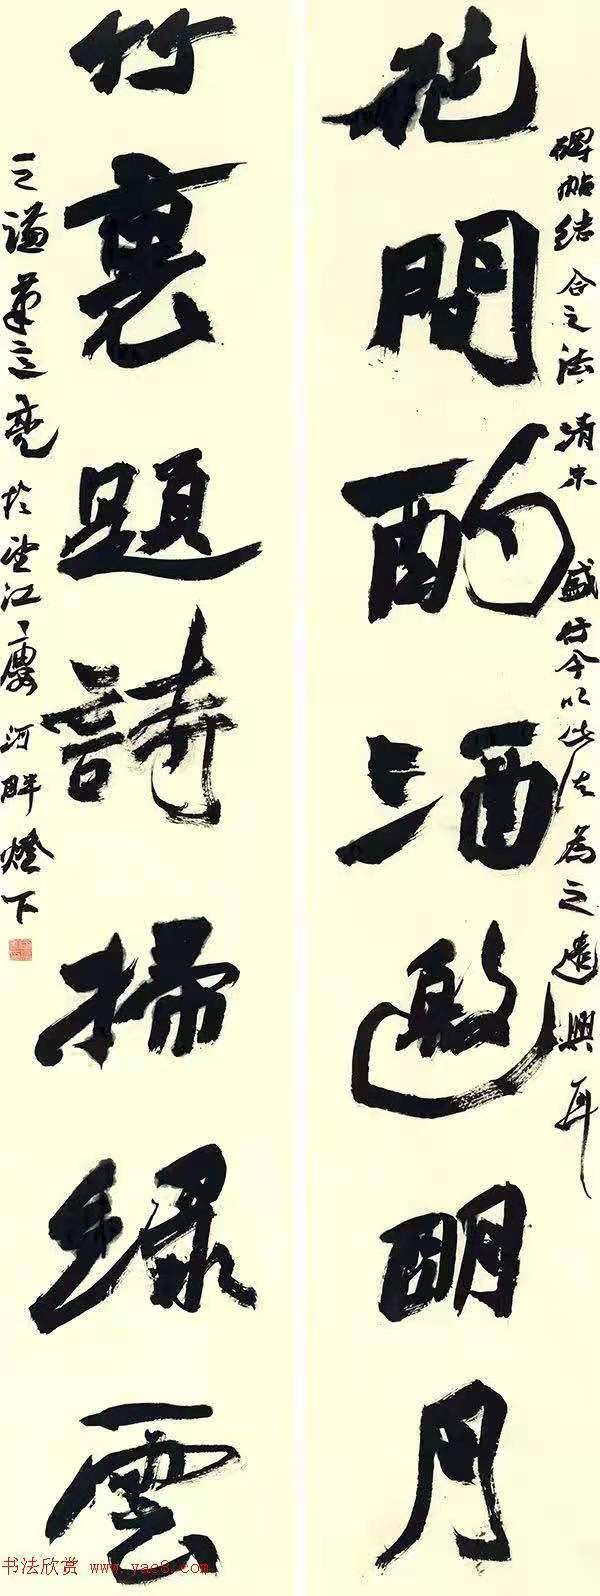 花間酌酒邀明月
碑帖結合之法清末盛行今以此法為之遣興耳
竹裏題詩掃綠雲
之謙筆意亮於望江廔河畔燈下
书法欣赏 www.yac8.com